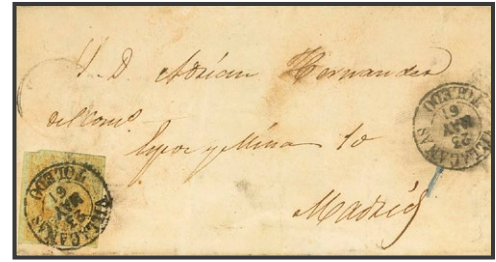 S. D. Adrian Hernandez
del Com.º
Espoz y Mina 10
Madrid
VILLACAÑAS
23
MAY
61
TOLEDO
VILLACAÑAS
23
MAY
61
TOLEDO